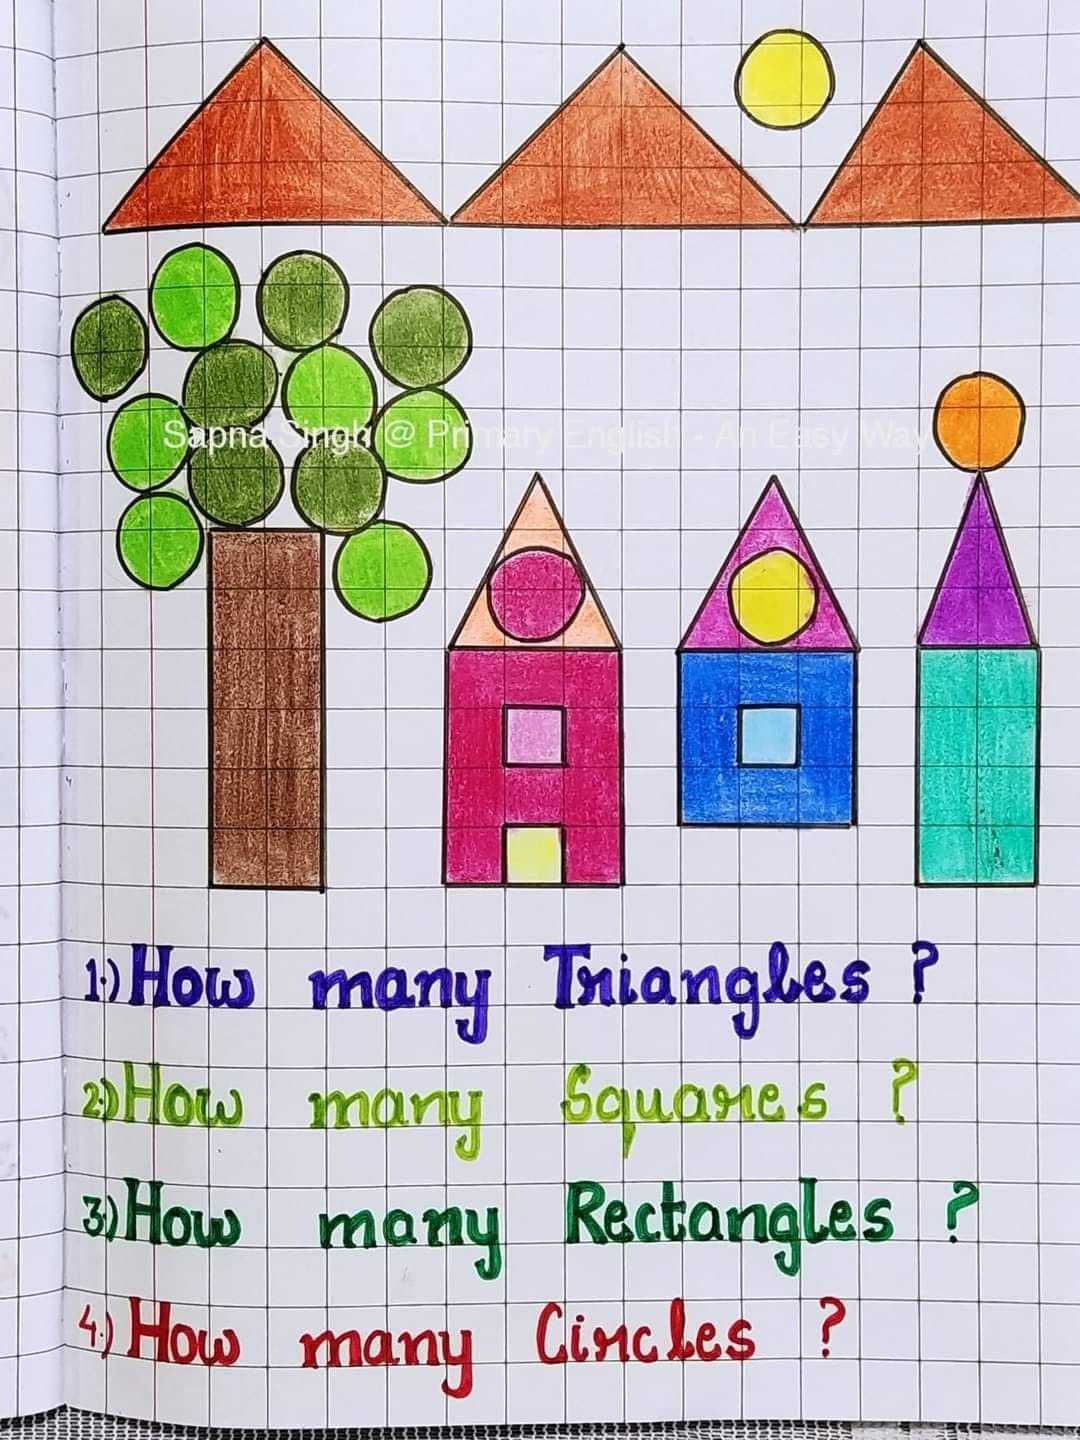 Sapna Singh @ Primary English - An Easy Way
1.) How many Triangles ?
2.) How many Squares ?
3.) How many Rectangles ?
4.) How many Circles ?